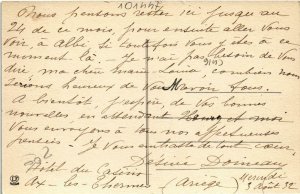 101447
Nous pensons rester ici jusqu'au
24 de ce mois, pour ensuite aller vous
voir à Albi si toutefois vous êtes à ce
moment là. Je n'ai pas besoin de vous
9(1)
dire ma chère Louisa combien nous
serions heureux de vous revoir tous.
A bientôt j'espère de vos bonnes
nouvelles en attendant et moi
vous envoyons tous nos affectueuses
pensées Je vous embrasse de tout cœur.
Désirée
Hôtel du Casino
Ax-les-Thermes (Ariège) Mercredi
3 Août 32